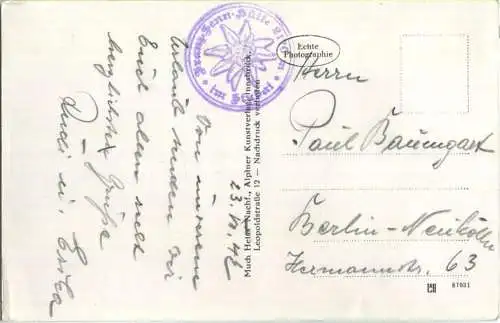 Franz-Senn-Hütte
im Stubai
Echte
Photographie
Much Heiss Nachf., Alpiner Kunstverlag, Innsbruck,
Leopoldstraße 12 — Nachdruck verboten
Von unserem
Urlaub senden wir
Euch allen recht
herzlichste Grüße
Rudi u. Erika
Herrn
Paul Baumgart
Berlin-Neukölln
Hermannstr. 63
87031